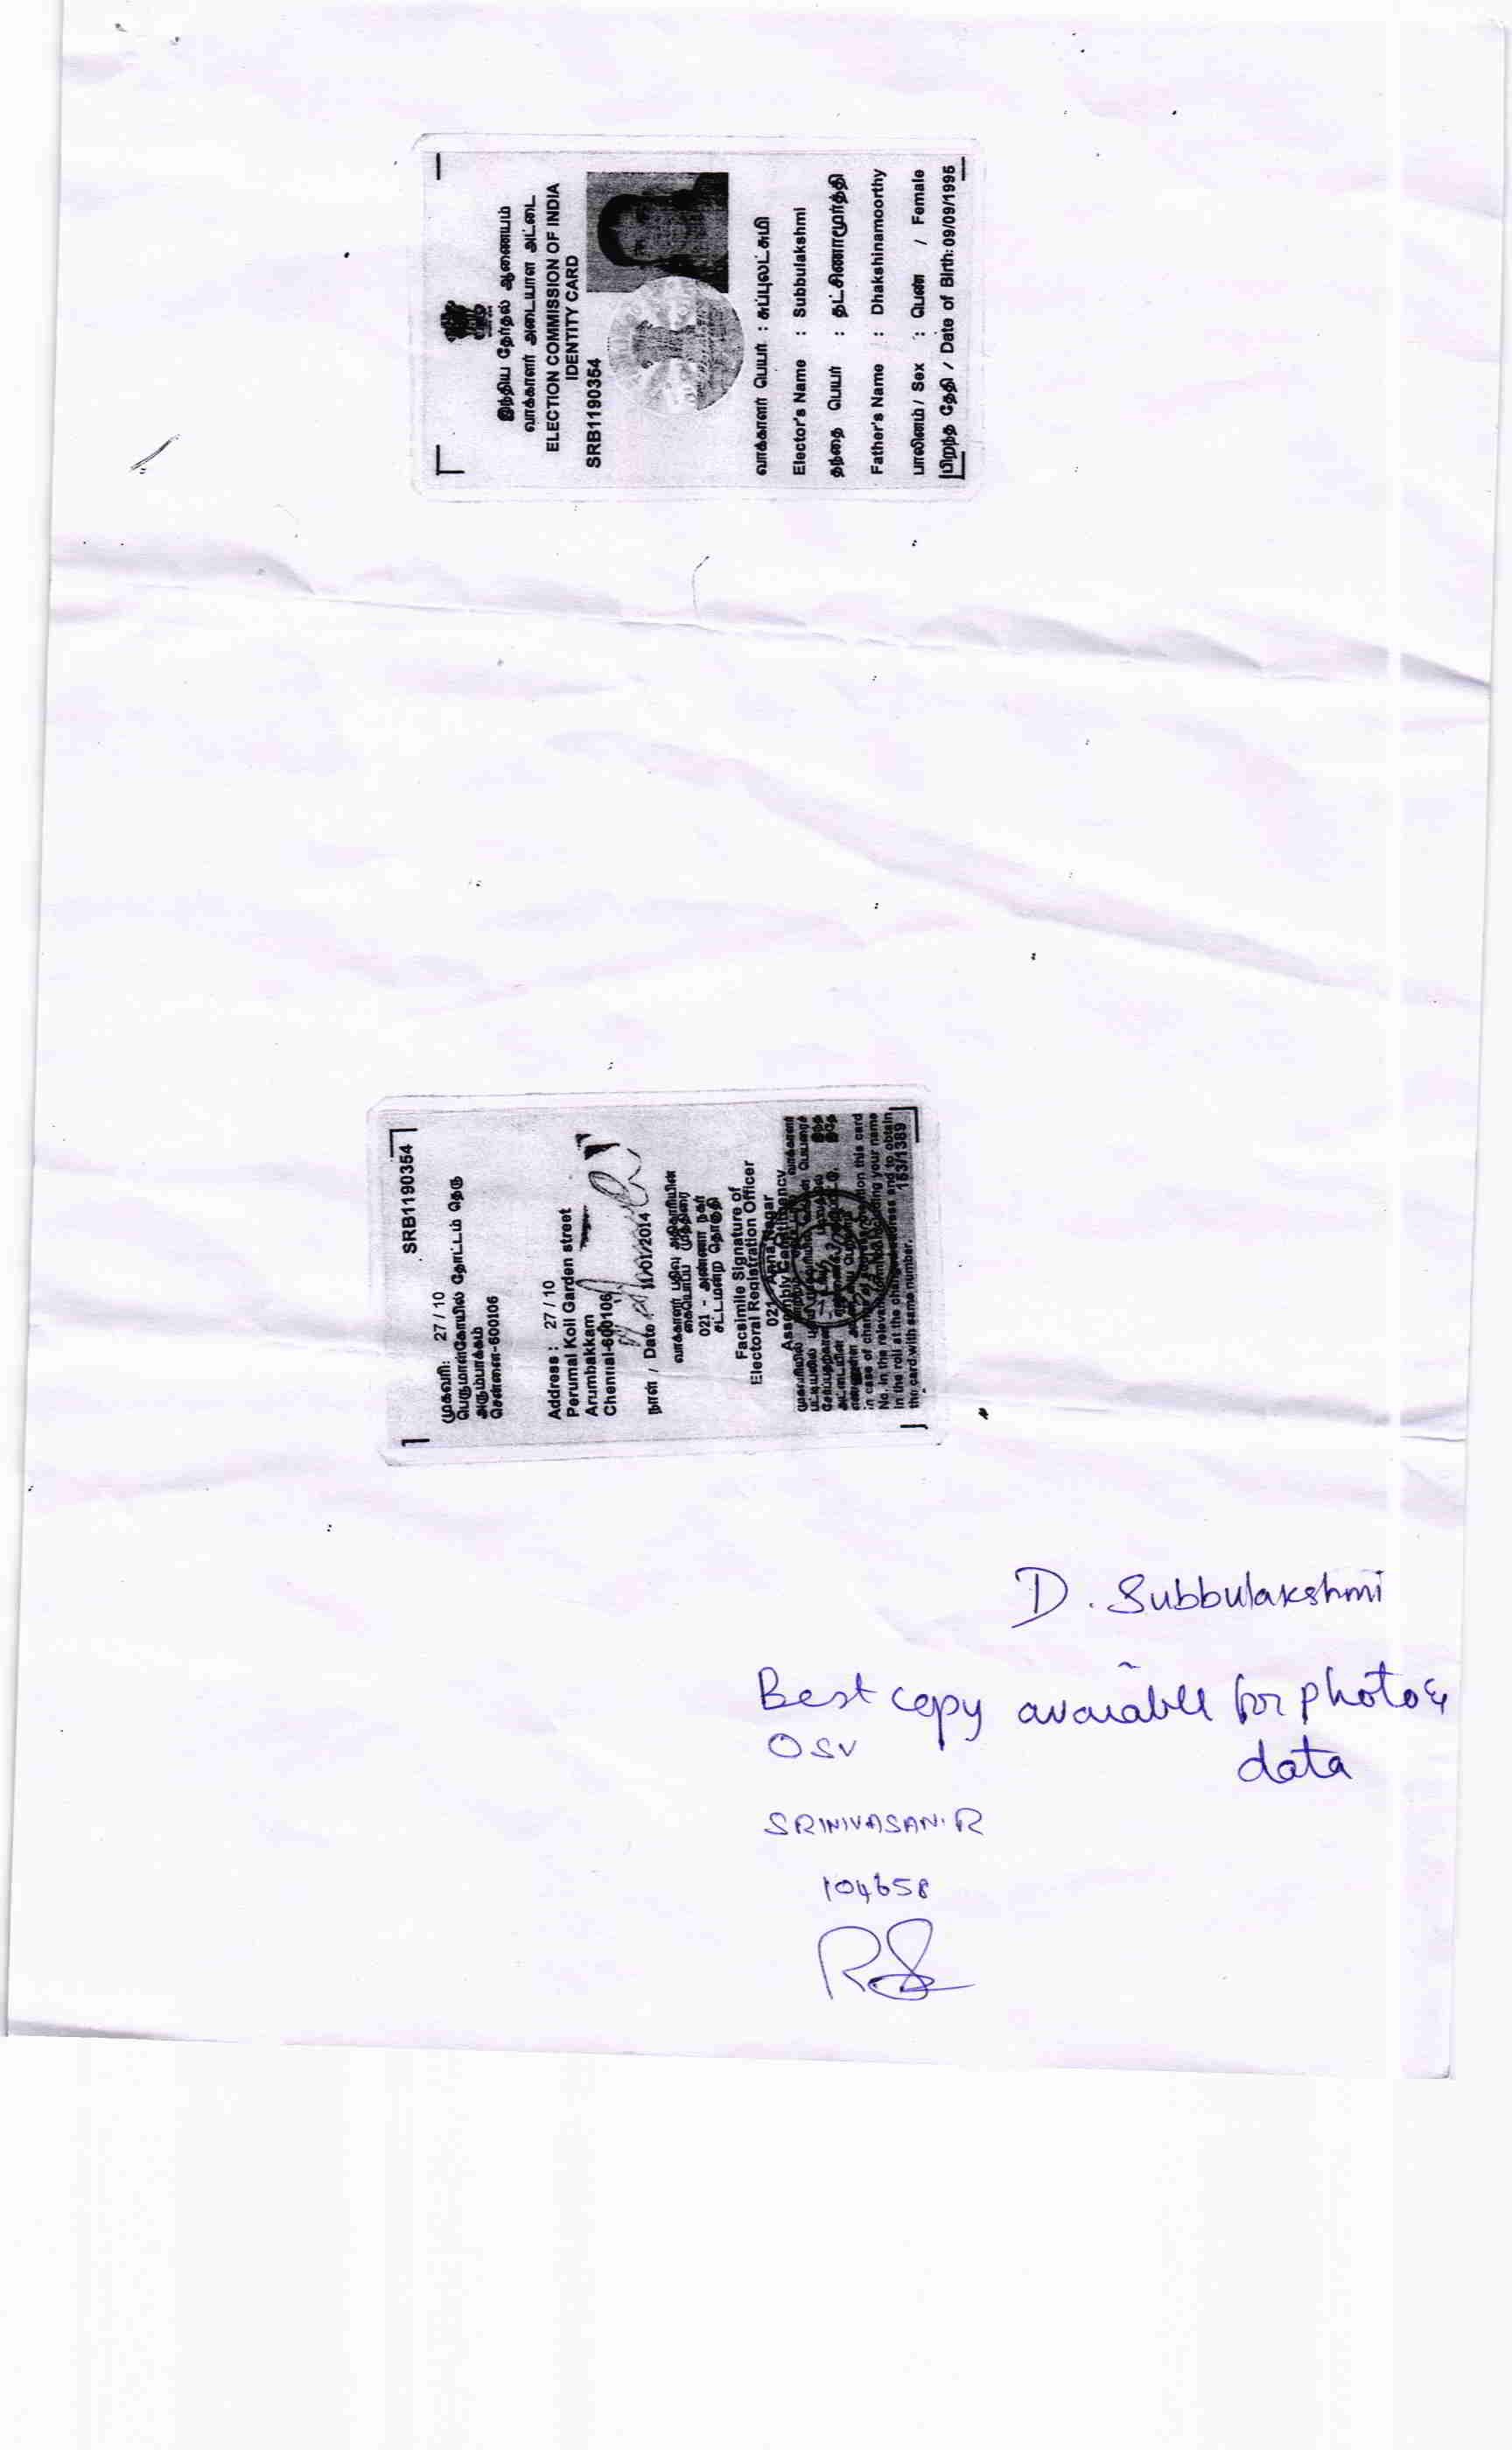 இந்திய தேர்தல் ஆணையம்
வாக்காளர் அடையாள அட்டை
ELECTION COMMISSION OF INDIA
IDENTITY CARD
SRB1190354
வாக்காளர் பெயர் : சுப்புலட்சுமி
Elector's Name : Subbulakshmi
தந்தை பெயர் : தட்சிணாமூர்த்தி
Father's Name : Dhakshinamoorthy
பாலினம் / Sex : பெண் / Female
பிறந்த தேதி / Date of Birth: 09/09/1995
SRB1190354
முகவரி: 27 / 10
பெருமாள்கோயில் தோட்டம் தெரு
அரும்பாக்கம்
சென்னை-600106
Address : 27 / 10
Perumal Koil Garden street
Arumbakkam
Chennai-600106
நாள் / Date
வாக்காளர் பதிவு அதிகாரியின்
021 - அண்ணா நகர்
சட்டமன்ற தொகுதி
Facsimile Signature of
Electoral Registration Officer
021 - Anna Nagar
Assembly Constituency
in the roll at the and to obtain
the card with same number.
153/1389
D. Subbulakshmi
Best copy avaiable for photo &
data
OSV
SRINIVASAN. R
104658